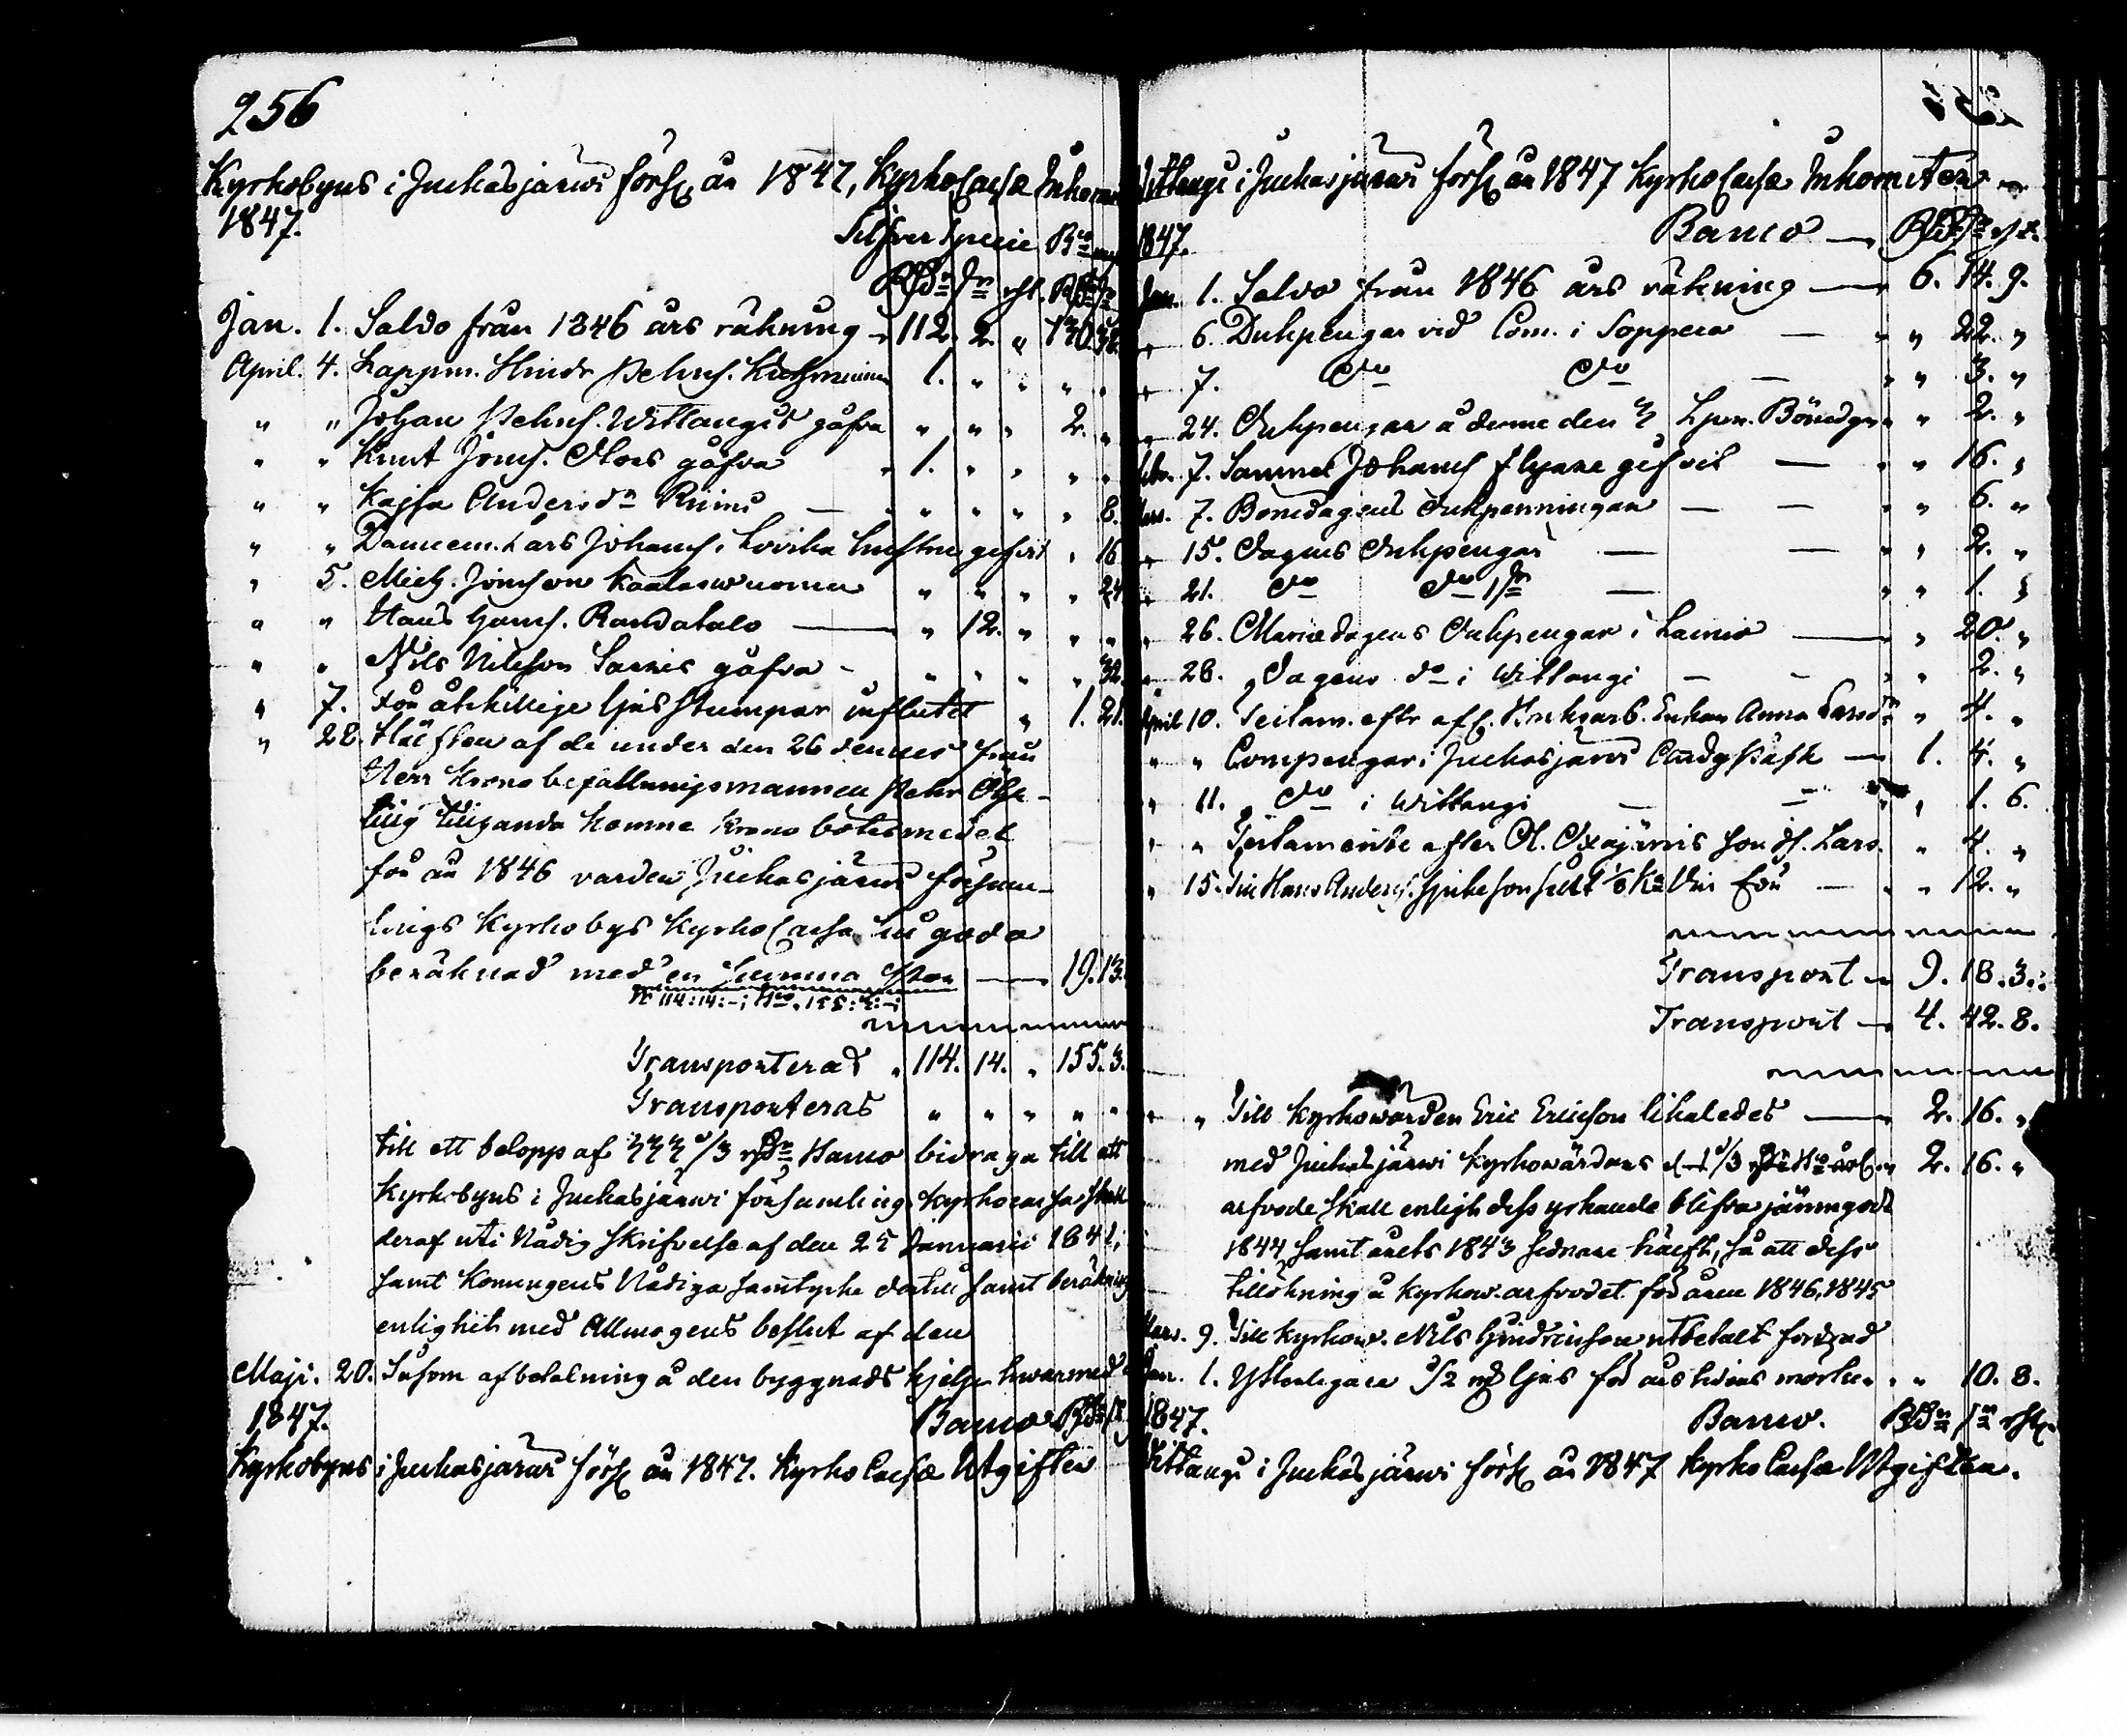 256
Kyrkobyns i Juckasjärwi förs. år 1847, Kyrko Cassa Inkom
1847.
Silfver Specie Bco
RDr sk. rst. RDr sk
Jan. 1. Saldo från 1846 års räkning - 112. 2. „ 130.
April. 4. Lappm. Hindr Pehrs. 1. „ „ „ „
„ „ Johan Pehrs. Wittangis gåfva „ „ „ 2. „
„ „ Knut Jöns. gåfva „ 1. „ „ „ „
„ „ Kajsa Andersdr „ „ „ „ 8.
„ „ Lars Johans. Lovika hustru gifvit „ 16
„ 5. Mich. Jönsson Kaalaswuoma „ „ „ „ 24
„ „ Hans Hans. Randatalo — „ 12. „ „ „
„ „ Nils Nilsson Sarris gåfva - „ „ „ „ 32.
„ 7. För åtskillige ljus stumpar influtit „ 1. 21.
„ 28. Hälften af de under den 26 dennes från
Herr Krono befallningsmannen Pehr
tillhanda komne Krono botesmedel
för år 1846 varder Juckasjärwi försam-
lings Kyrkobys Kyrko Cassa till godo
beräknad med en Summa stor — 19. 13.
114: 14: -; Bco. 155: 3: -;
Transporterad „ 114. 14. „ 155. 3.
Transporteras „ „ „ „ „
till ett belopp af 333 1/3 rdr Banco bidraga till att
Kyrkobyns i Juckasjärwi församling Kyrkocassa skall
deraf uti Nådig skrifvelse af den 25 Januarii 1842;
samt Konungens Nådiga samtycke dertill samt
enlighet med Allmogens beslut af den
Maji. 20. Såsom afbetalning å den byggnads hjelp hwarmed
1847. Banco RDr sk
Kyrkobyns i Juckasjärwi förs. år 1847. Kyrko Cassa Utgifter
Wittangi i Juckasjärwi förs. år 1847 Kyrko Cassa Inkomster
1847. Banco — RDr sk rst.
Jan. 1. Saldo från 1846 års räkning — 6. 14. 9.
„ 6. Dukpengar vid Com. i Soppero — „ „ 22. „
„ 7. do do — „ „ 3. „
„ 24. Dukpengar å denne den Böndag „ „ 2. „
Febr. 7. Samuel Johans gifvit — „ „ 16. „
Mars. 7. Bönedagens dukpenningar — — „ „ 6. „
„ 15. dagens dukpengar — — „ „ 2. „
„ 21. do do 1 sk — „ „ 1. „
„ 26. Mariedagens dukpengar i Lainio — „ 20. „
„ 28. dagens do i Wittangi - - „ „ 2. „
April 10. Testam. eftr afl. Enkan Anna Larsdr „ „ 4. „
„ „ Compengar i Juckasjärwi Påsk — 1. 4. „
„ 11. do i Wittangi — — „ „ 1. 6.
„ „ Testamente efter Ol. Oxajärwis son Lars. „ 4. „
„ 15. Till Hans Anders. såldt 1/8 Ka Vin för — „ „ 12. „
Transport — 9. 18. 3.
Transport — 4. 42. 8.
„ „ Till Kyrkowärden Eric Ericsson likaledes — 2. 16. „
med Juckasjärwi Kyrkowärdens 2. 16. „
arfvode skall enligt dess yrkande blifva jämngodt
1844 samt årets 1843 sednare hälft, så att dess
tillökning å Kyrkow. arfvodet för åren 1846, 1845
Mars. 9. Till Kyrkow. Nils Hindricsson utbetalt
Jan. 1. Ytterligare 1/2 ljus för „ „ 10. 8.
1847. Banco. RDr sk rst.
Wittangi i Juckasjärwi förs. år 1847 Kyrko Cassa Utgifter.